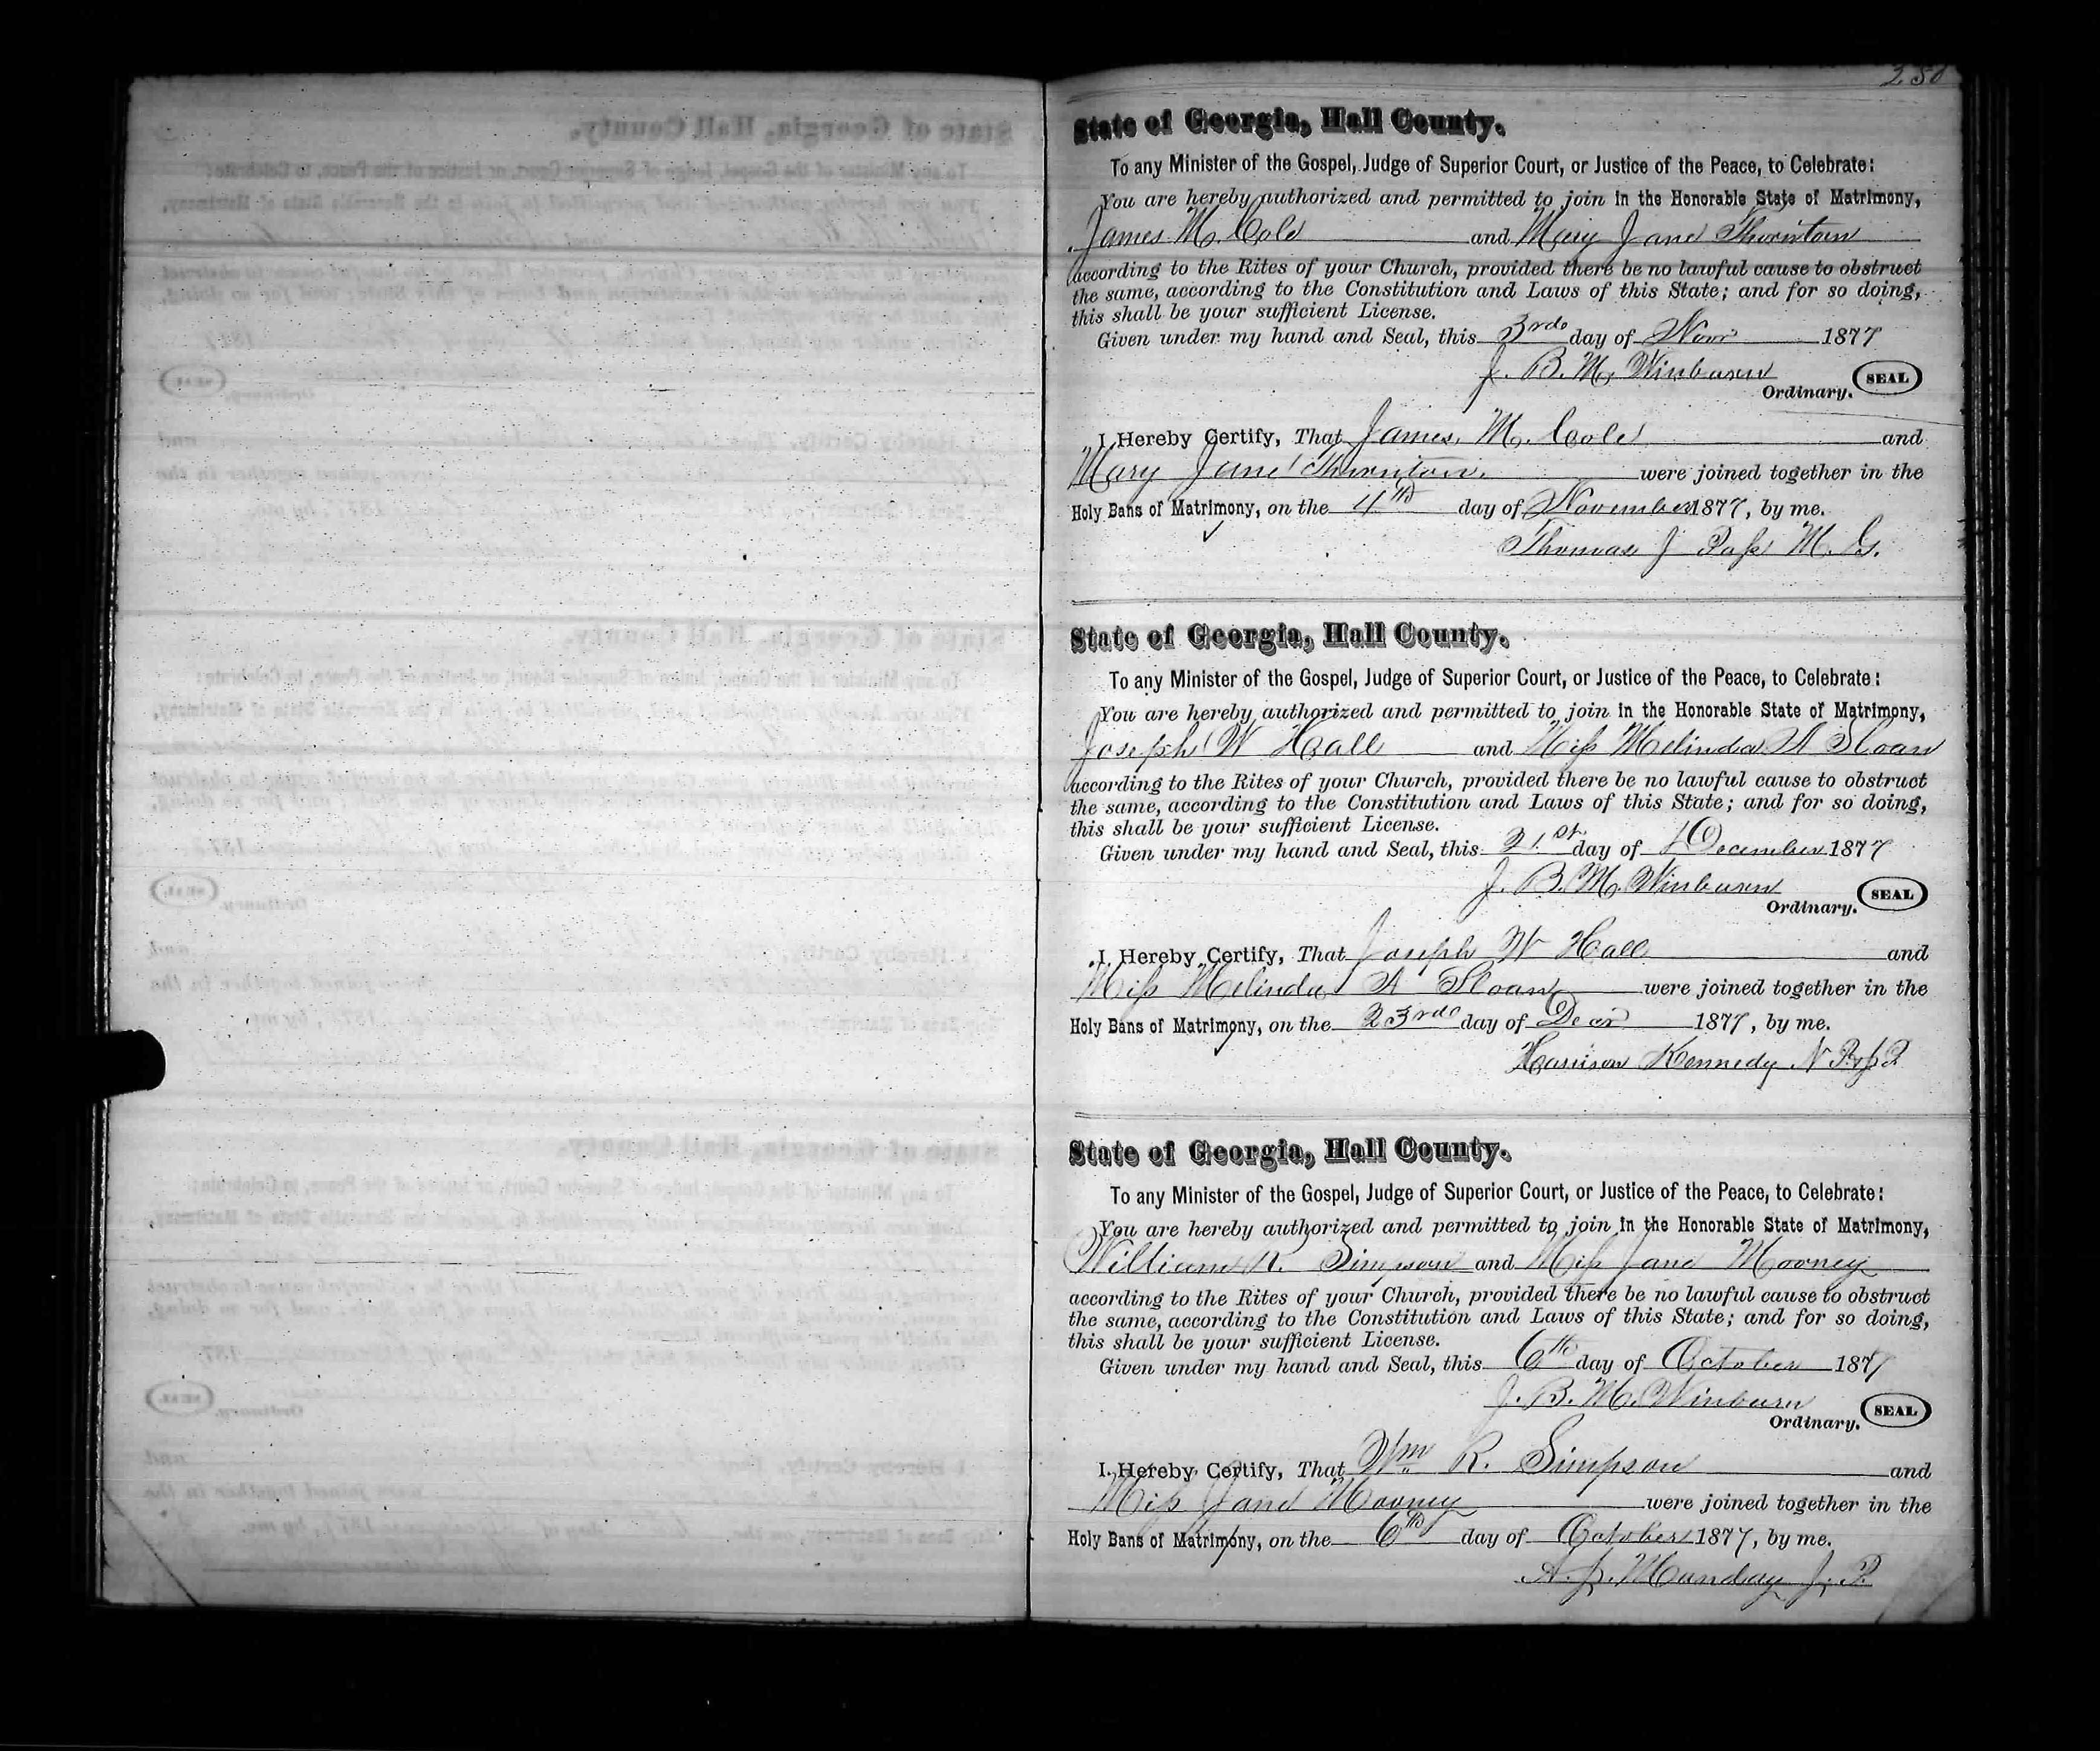 250
State of Georgia, Hall County.
To any Minister of the Gospel, Judge of Superior Court, or Justice of the Peace, to Celebrate:
You are hereby authorized and permitted to join in the Honorable State of Matrimony,
James M. Cole and Mary Jane Thornton
according to the Rites of your Church, provided there be no lawful cause to obstruct
the same, according to the Constitution and Laws of this State; and for so doing,
this shall be your sufficient License.
Given under my hand and Seal, this 3rd day of Novr 1877
J. B. M. Winburn
Ordinary. SEAL
I Hereby Certify, That James M. Cole and
Mary Jane Thornton were joined together in the
Holy Bans of Matrimony, on the 4th day of November 1877, by me.
Thomas J Pass M. G.
State of Georgia, Hall County.
To any Minister of the Gospel, Judge of Superior Court, or Justice of the Peace, to Celebrate:
You are hereby authorized and permitted to join in the Honorable State of Matrimony,
Joseph W Hall and Miss Melinda A Sloan
according to the Rites of your Church, provided there be no lawful cause to obstruct
the same, according to the Constitution and Laws of this State; and for so doing,
this shall be your sufficient License.
Given under my hand and Seal, this 21st day of December 1877
J. B. M. Winburn
Ordinary. SEAL
I Hereby Certify, That Joseph W Hall and
Miss Melinda A Sloan were joined together in the
Holy Bans of Matrimony, on the 23rd day of Decr 1877, by me.
Harrison Kennedy N P & J P
State of Georgia, Hall County.
To any Minister of the Gospel, Judge of Superior Court, or Justice of the Peace, to Celebrate:
You are hereby authorized and permitted to join in the Honorable State of Matrimony,
William R. Simpson and Miss Jane Mooney
according to the Rites of your Church, provided there be no lawful cause to obstruct
the same, according to the Constitution and Laws of this State; and for so doing,
this shall be your sufficient License.
Given under my hand and Seal, this 6th day of October 1877
J. B. M. Winburn
Ordinary. SEAL
I Hereby Certify, That Wm R. Simpson and
Miss Jane Mooney were joined together in the
Holy Bans of Matrimony, on the 6th day of October 1877, by me.
A. J. Munday J. P.